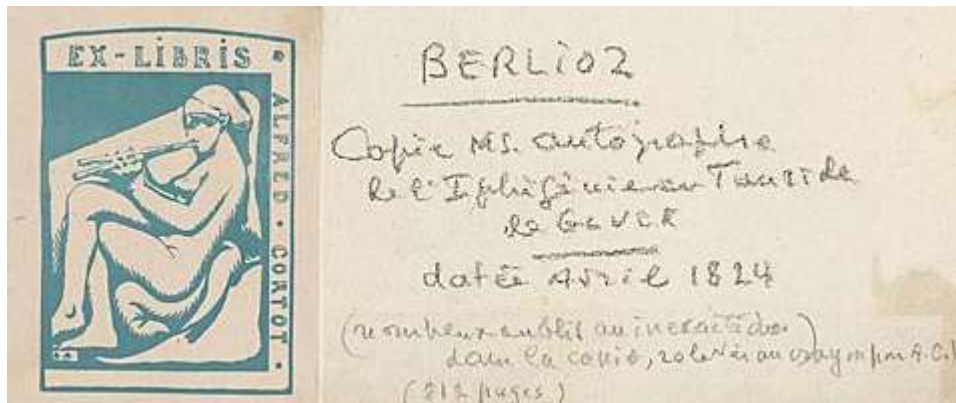 EX-LIBRIS •
ALFRED • CORTOT •
BERLIOZ
Copie MS. autographe
de l'Iphigénie en Tauride
de GLUCK
datée Avril 1824
(nombreux oublis ou inexactitudes)
dans la copie, relevés au crayon par A.C.
(212 pages)